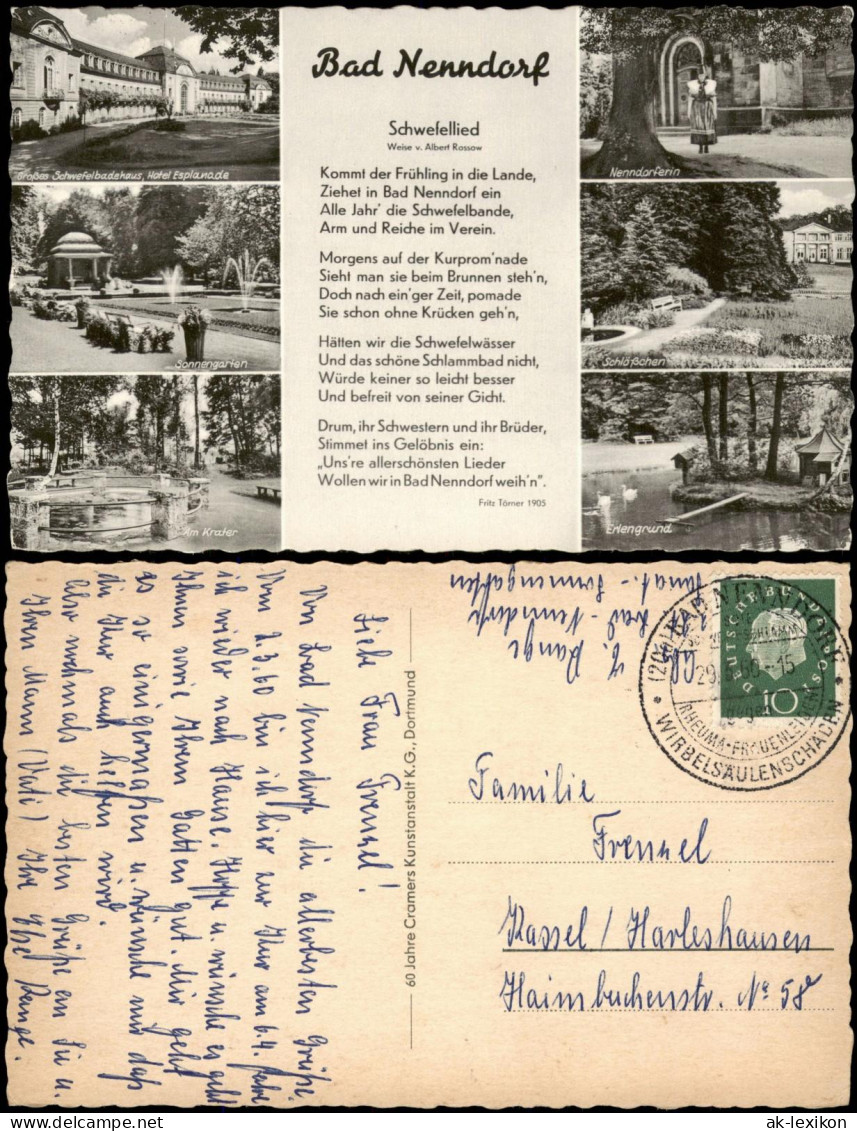 Bad Nenndorf
Schwefellied
Weise v. Albert Rossow
Kommt der Frühling in die Lande,
Ziehet in Bad Nenndorf ein
Alle Jahr' die Schwefelbande,
Arm und Reiche im Verein.
Morgens auf der Kurprom'nade
Sieht man sie beim Brunnen steh'n,
Doch nach ein'ger Zeit, pomade
Sie schon ohne Krücken geh'n,
Hätten wir die Schwefelwässer
Und das schöne Schlammbad nicht,
Würde keiner so leicht besser
Und befreit von seiner Gicht.
Drum, ihr Schwestern und ihr Brüder,
Stimmet ins Gelöbnis ein:
„Uns're allerschönsten Lieder
Wollen wir in Bad Nenndorf weih'n".
Fritz Törner 1905
Großes Schwefelbadehaus, Hotel Esplanade
Sonnengarten
Am Krater
Nenndorferin
Schlößchen
Erlengrund
Liebe Frau Frenzel!
Von Bad Nenndorf die allerbesten Grüße.
Vom 2.3.60 bin ich hier zur Kur am 6.4. fahre
ich wieder nach Hause. Hoffe u. wünsche es geht
Ihnen sowie Ihrem Gatten gut. Mir geht
es so einigermaßen u. wünsche nur daß
die Kur auch helfen wird.
Also nochmals die besten Grüße an Sie u.
Ihren Mann Ihr
60 Jahre Cramers Kunstanstalt K.G., Dortmund
Bad-Nenndorf
DEUTSCHE BUNDESPOST
10
BAD NENNDORF
gegen
RHEUMA-FRAUENLEIDEN
WIRBELSÄULENSCHÄDEN
Familie
Frenzel
Kassel / Harleshausen
Haimbuchenstr. No 58
ak-lexikon.com